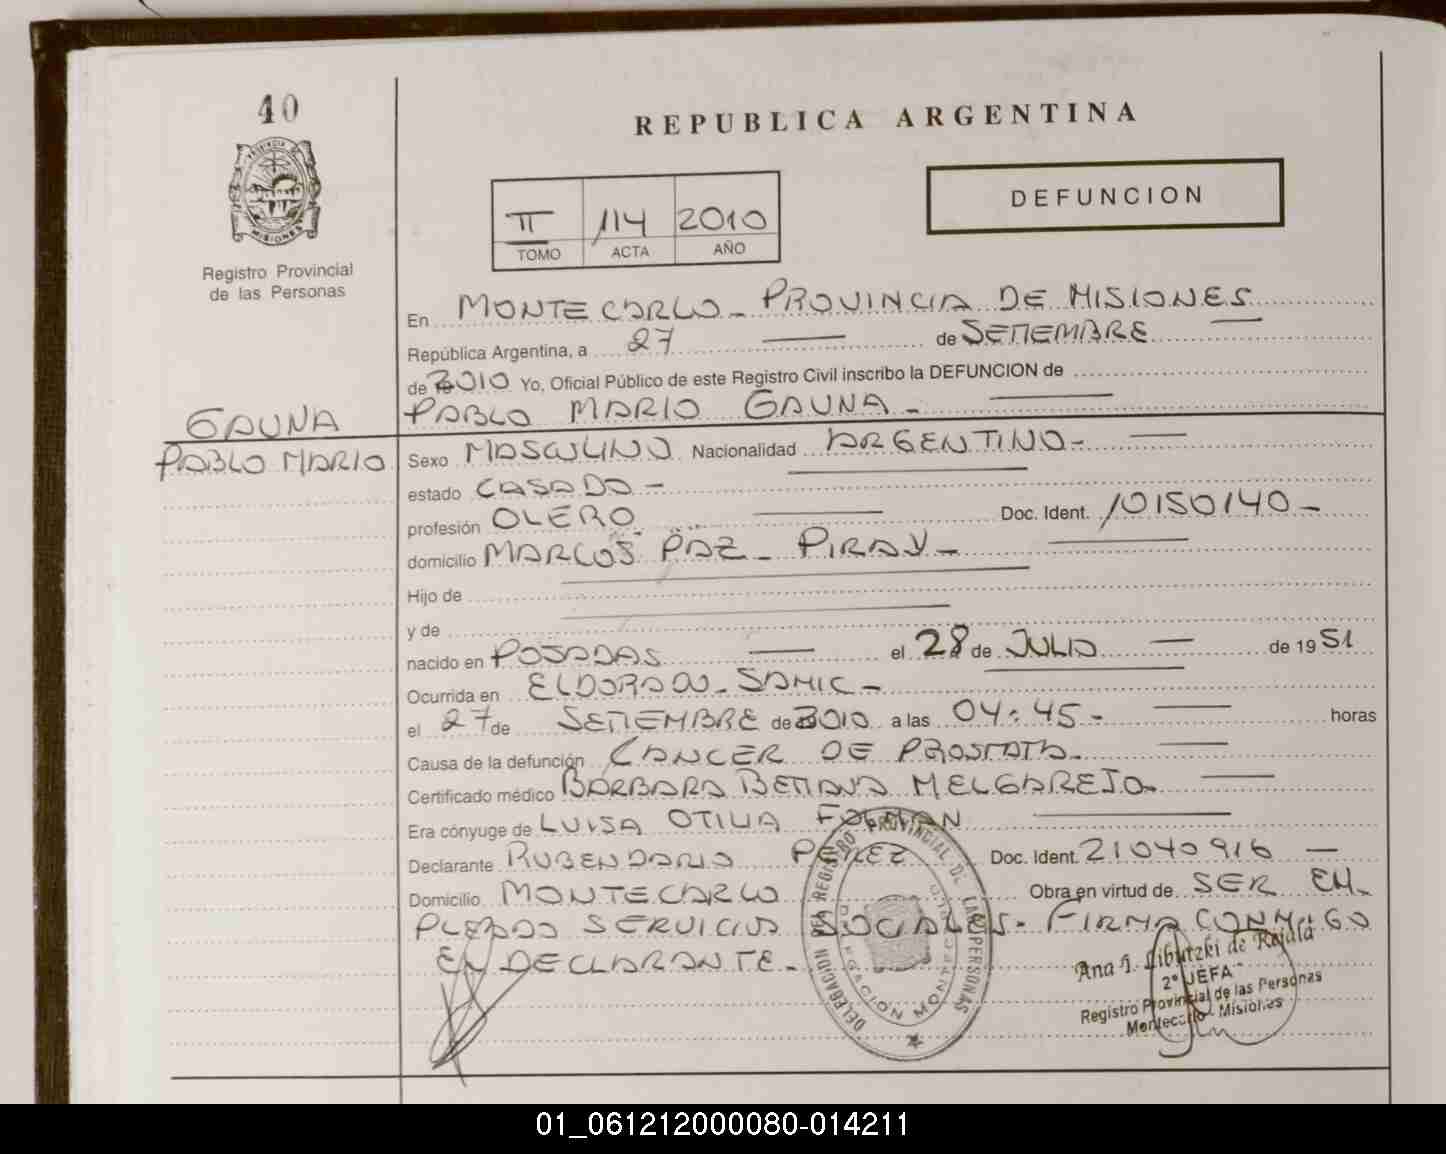 40
REPUBLICA ARGENTINA
DEFUNCION
II 114 2010
TOMO ACTA AÑO
PROVINCIA DE MISIONES
Registro Provincial
de las Personas
En MONTECARLO - PROVINCIA DE MISIONES
República Argentina, a 27 de SETIEMBRE
de 2010 Yo, Oficial Público de este Registro Civil inscribo la DEFUNCION de
GAUNA PABLO MARIO GAUNA -
PABLO MARIO Sexo MASCULINO Nacionalidad ARGENTINO -
estado CASADO -
profesión OLERO Doc. Ident. 10150140 -
domicilio MARCOS PAZ - PIRAY -
Hijo de
y de
nacido en POSADAS el 28 de JULIO de 1951
Ocurrida en ELDORADO - SAMIC -
el 27 de SETIEMBRE de 2010 a las 04:45 - horas
Causa de la defunción CANCER DE PROSTATA -
Certificado médico BARBARA BETIANA MELGAREJO -
Era cónyuge de LUISA OTILIA
Declarante RUBEN DARIO PEREZ Doc. Ident. 21040916 -
Domicilio MONTECARLO Obra en virtud de SER EM-
PLEADO SERVICIOS SOCIALES - FIRMA CONMIGO
EL DECLARANTE -
DELEGACION DEL REGISTRO PROVINCIAL DE LAS PERSONAS
DELEGACION MONTECARLO
Ana I. Libutzki de Rojala
2° JEFA
Registro Provincial de las Personas
Montecarlo - Misiones
01_061212000080-014211